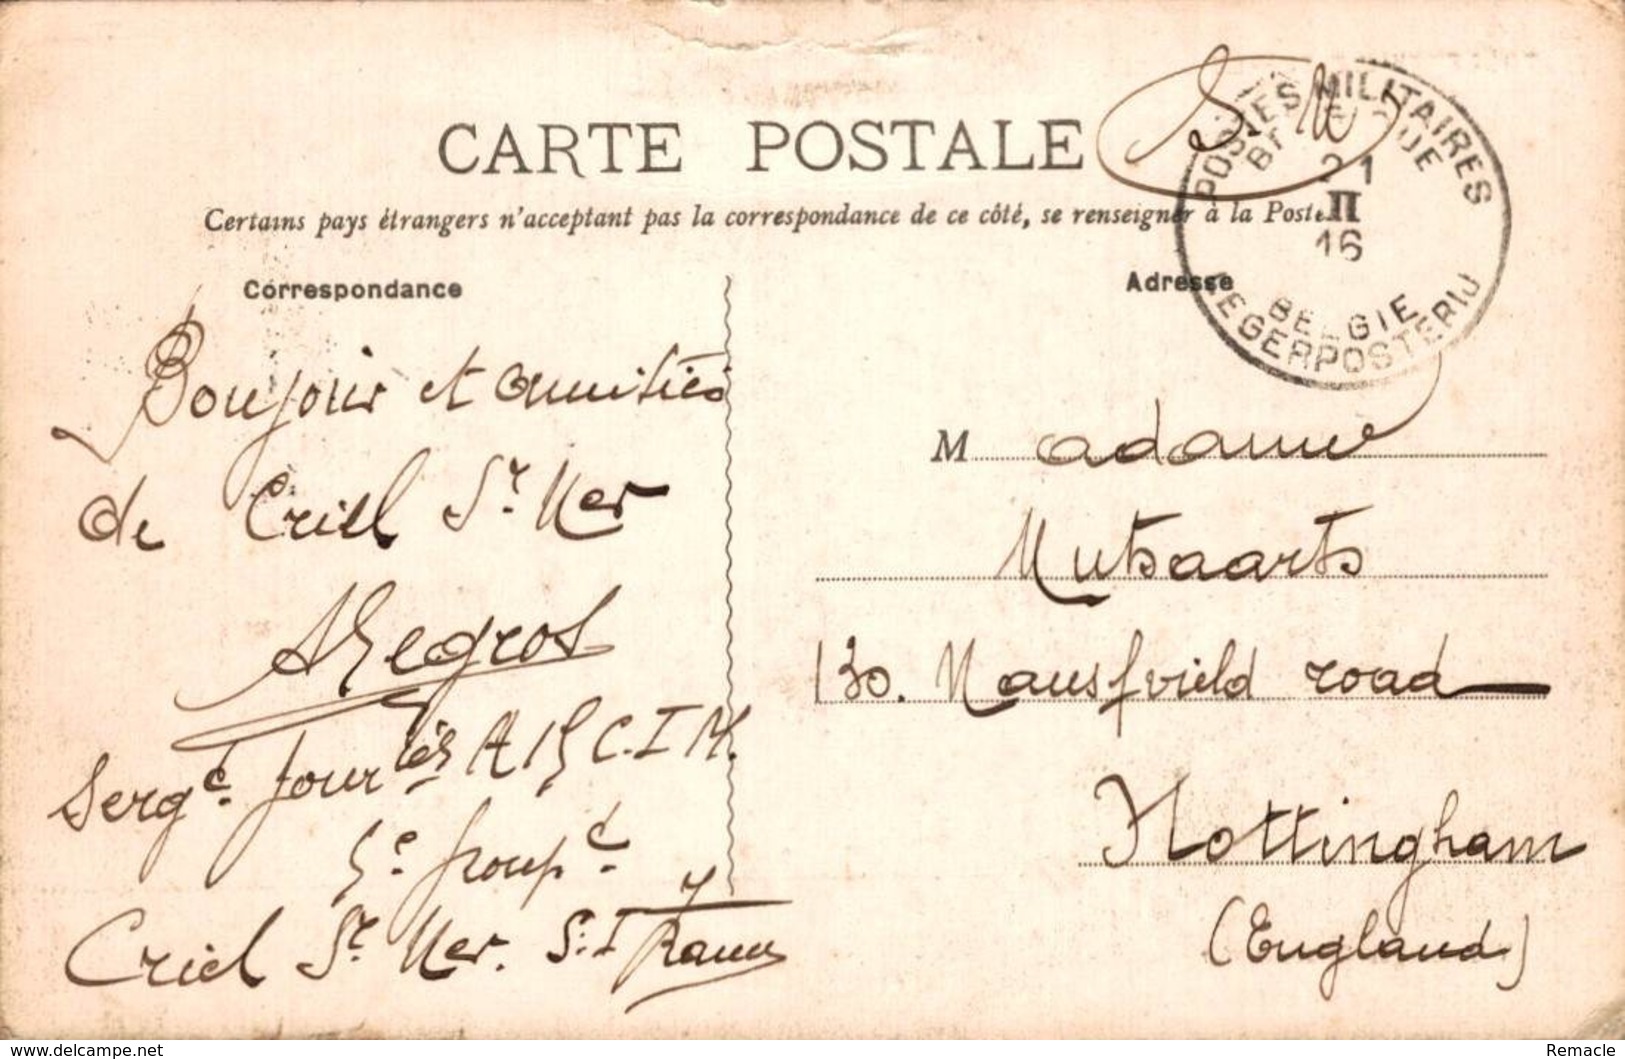 CARTE POSTALE
Certains pays étrangers n'acceptent pas la correspondance de ce côté, se renseigner à la Poste
Correspondance
Adresse
S. M
POSTES MILITAIRES
BELGIQUE
21
II
16
BELGIE
LEGERPOSTERIJ
Bonjour et amitiés
de Criel Sr Mer
Sergt. four
C.I M.
5e. Group
Criel Sr Mer. S: I France
M adame
Mutsaarts
130. Mansfvield road
Nottingham
(England)
www.delcampe.net
Remacle